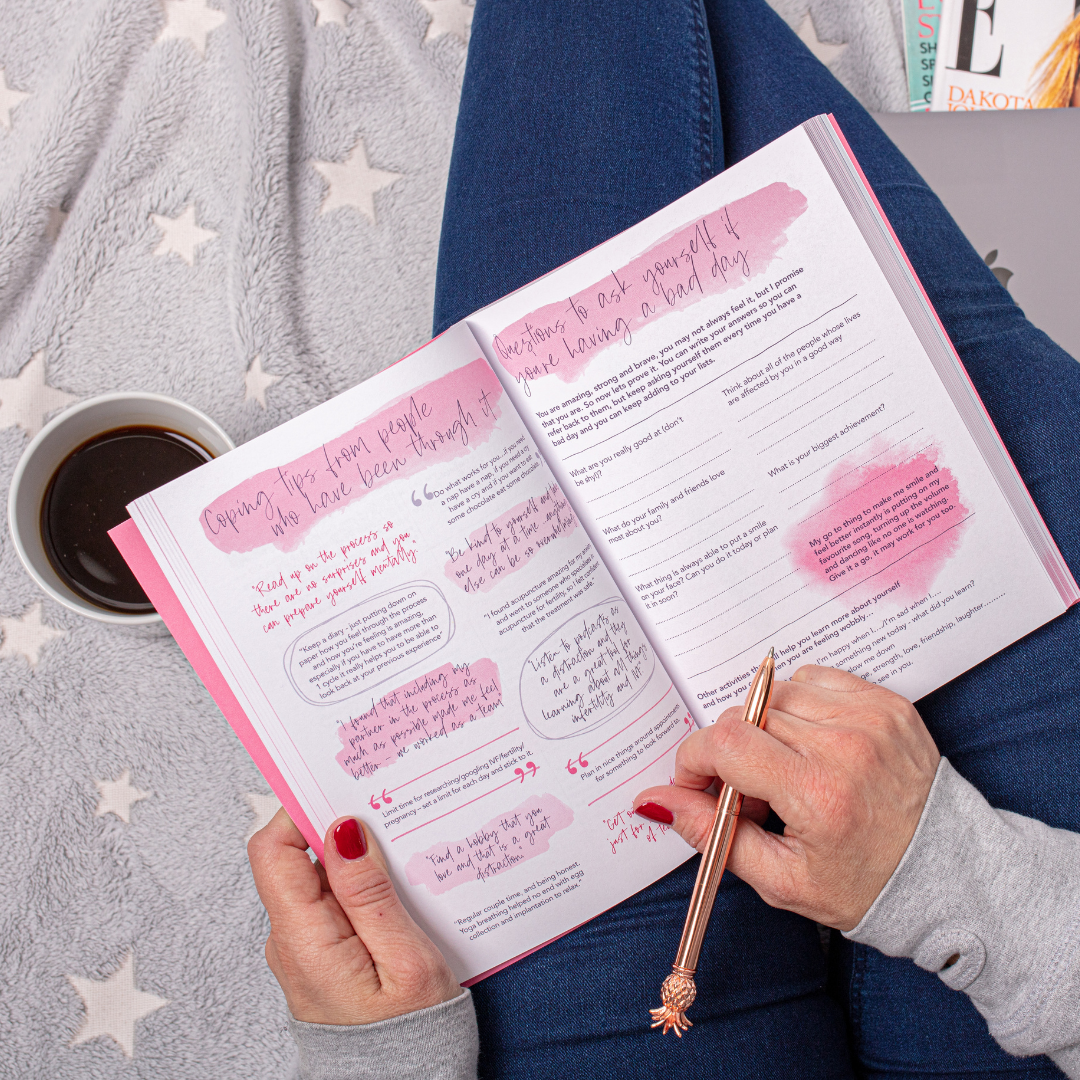 Coping tips from people
who have been through it
"Read up on the process so
there are no surprises and you
can prepare yourself mentally."
"Keep a diary - just putting down on
paper how you feel through the process
and how you're feeling is amazing,
especially if you have to have more than
1 cycle it really helps you to be able to
look back at your previous experience"
"I found that including my
partner in the process as
much as possible made me feel
better - we worked as a team"
Limit time for researching/googling IVF/fertility/
pregnancy – set a limit for each day and stick to it.
"Find a hobby that you
love and that is a great
distraction."
"Regular couple time, and being honest.
Yoga breathing helped no end with egg
collection and implantation to relax."
Do what works for you...if you need
a nap have a nap, if you need a cry
have a cry and if you want to eat
some chocolate eat some chocolate
"Be kind to yourself and take
one day at a time
else can be so
"I found acupuncture amazing for my
and went to someone who specialises in
acupuncture for fertility, so I felt confident
that the treatment was safe."
"Listen to podcasts as
a distraction and they
are a great tool for
learning about all things
infertility and IVF"
Plan in nice things around appointments
for something to look forward to.
"Get
just for
of
Questions to ask yourself if
you're having a bad day
You are amazing, strong and brave, you may not always feel it, but I promise
that you are. So now lets prove it. You can write your answers so you can
refer back to them, but keep asking yourself them every time you have a
bad day and you can keep adding to your lists.
What are you really good at (don't
be shy)?
What do your family and friends love
most about you?
What thing is always able to put a smile
on your face? Can you do it today or plan
it in soon?
Think about all of the people whose lives
are affected by you in a good way
What is your biggest achievement?
My go to thing to make me smile and
feel better instantly is putting on my
favourite song, turning up the volume
and dancing like no one is watching.
Give it a go, it may work for you too.
Other activities help you learn more about yourself
and how you when you are feeling wobbly...
I'm happy when I..../I'm sad when I....
something new today - what did you learn?
slow me down
strength, love, friendship, laughter
see in you.
E
DAKOTA
SH
SP